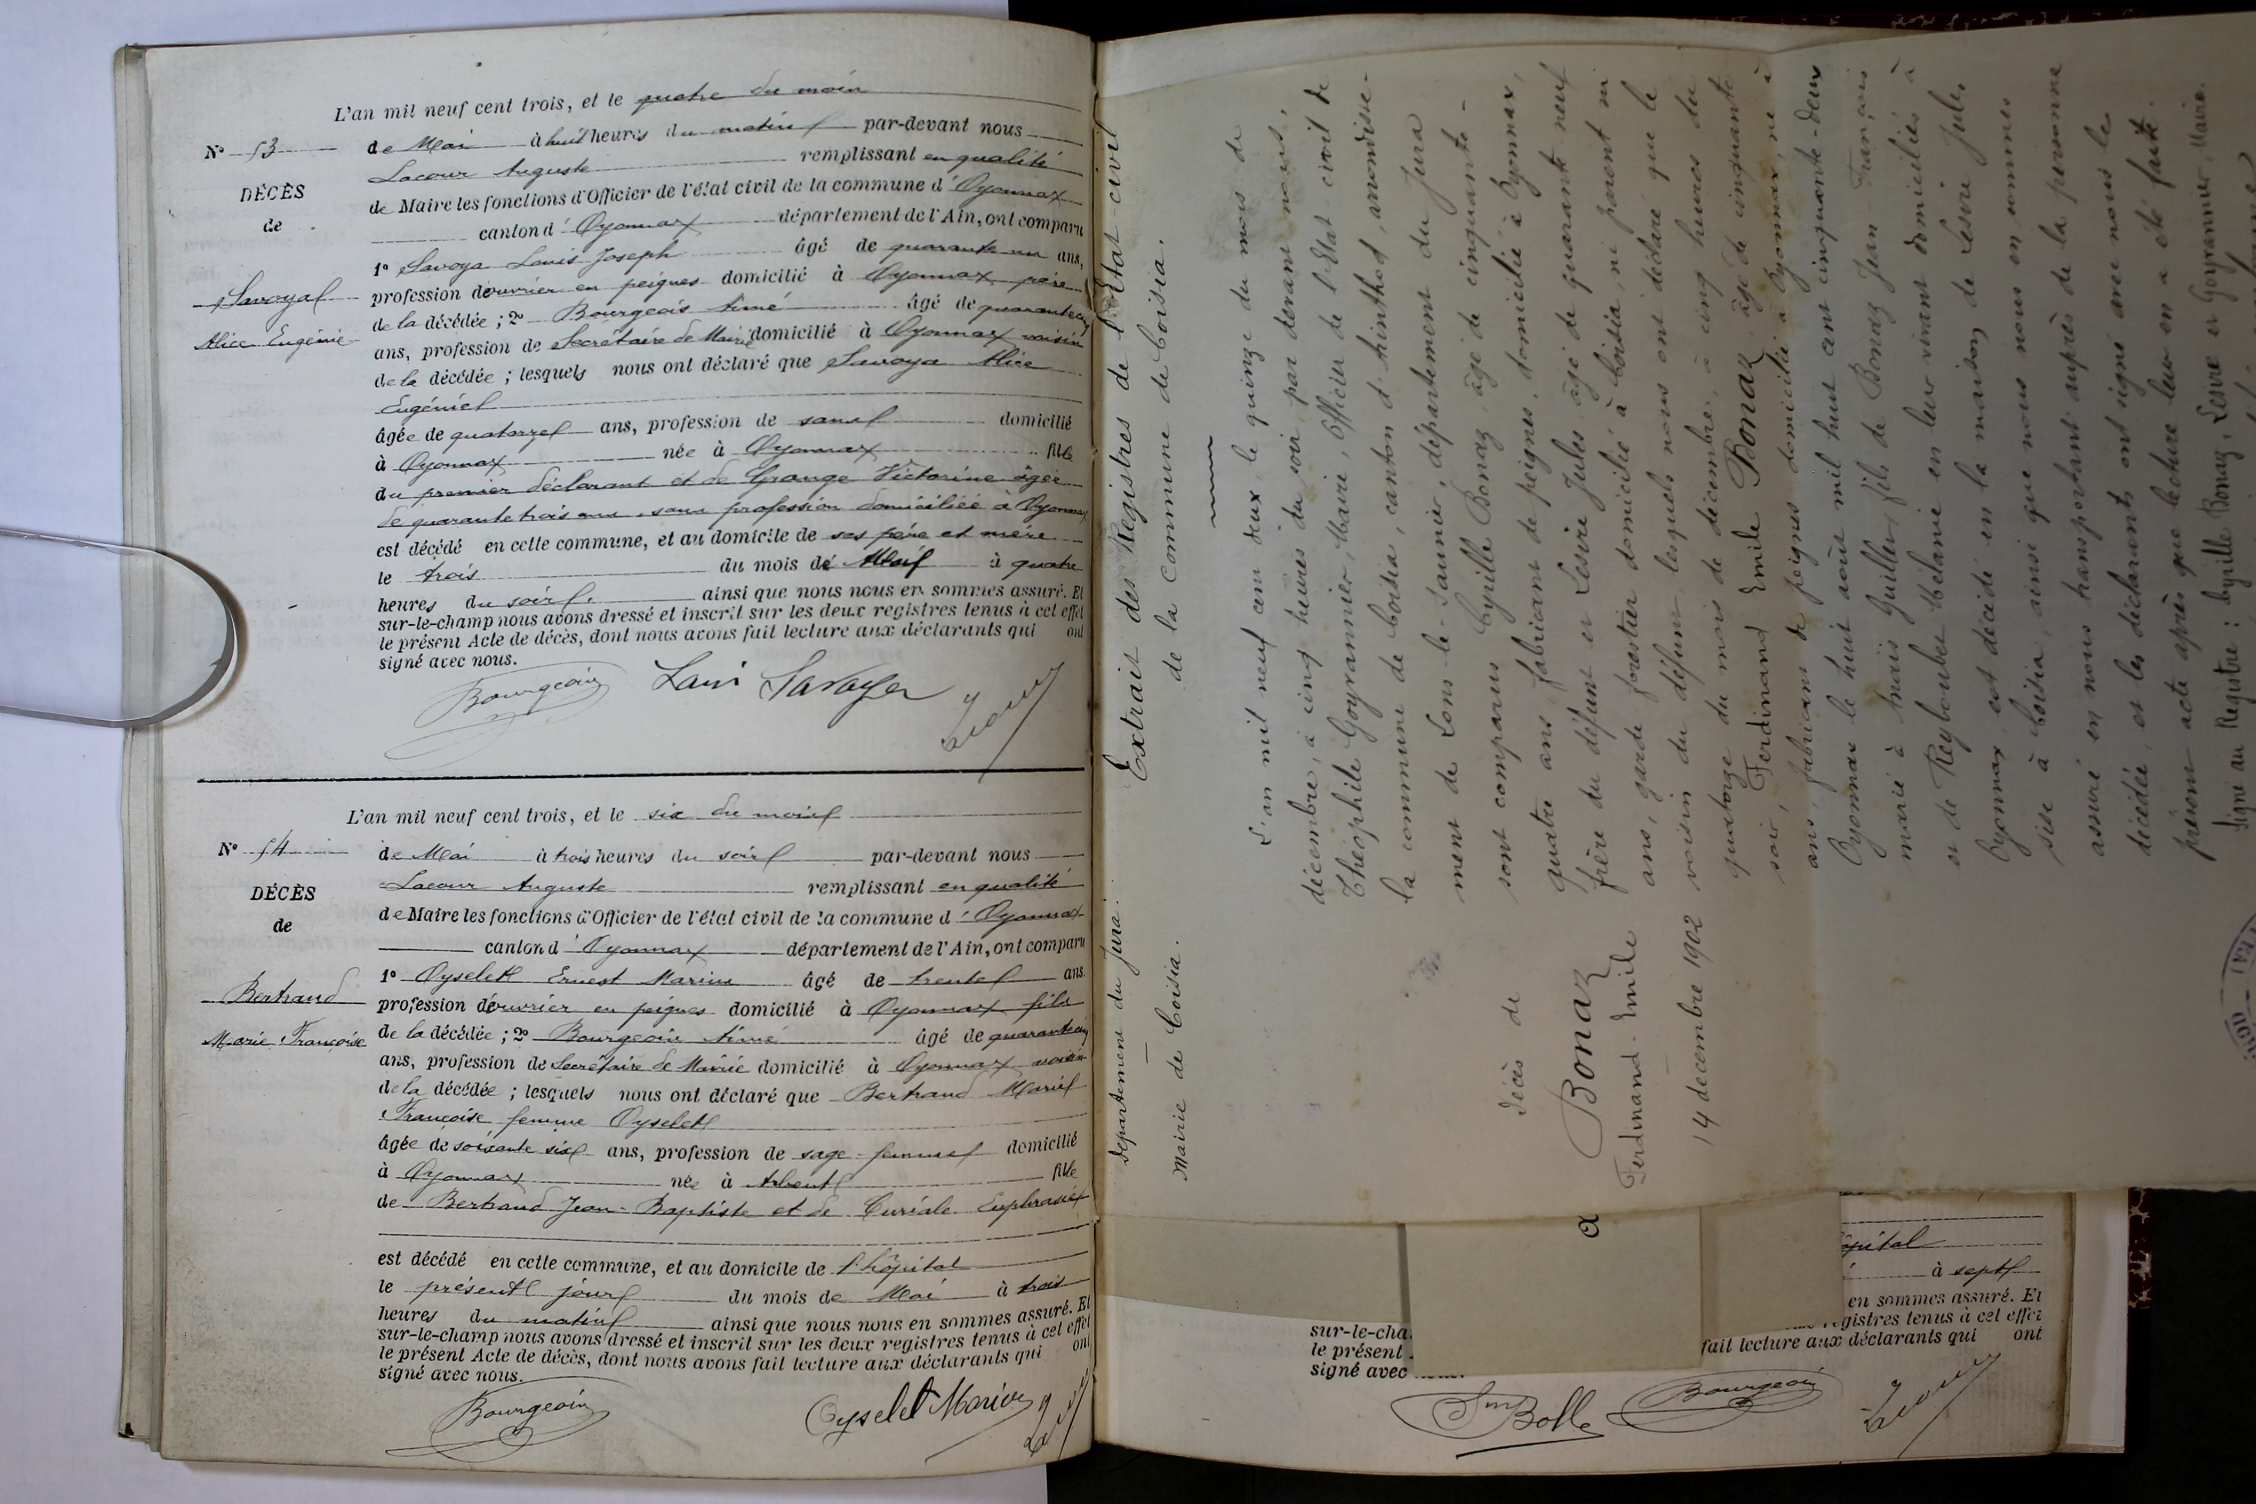 L'an mil neuf cent trois, et le quatre du mois
N° 53 de Mai à huit heures du matin par-devant nous
Lacour Auguste remplissant en qualité
DÉCÈS
de Maire les fonctions d'Officier de l'état civil de la commune d'Oyonnax
de
canton d'Oyonnax département de l'Ain, ont comparu
1° Savoya Louis Joseph âgé de quarante un ans,
Savoya
profession d'ouvrier en peignes domicilié à Oyonnax père
de la décédée ; 2° Bourgeois Aimé âgé de quarante cinq
Alice Eugénie
ans, profession de Secrétaire de Mairie domicilié à Oyonnax voisin
de la décédée ; lesquels nous ont déclaré que Savoya Alice
Eugénie
âgée de quatorze ans, profession de sans domicilié
à Oyonnax née à Oyonnax fille
du premier déclarant et de Grange Victorine âgée
de quarante trois ans, sans profession domiciliée à Oyonnax
est décédé en cette commune, et au domicile de ses père et mère
le trois du mois de Mai à quatre
heures du soir ainsi que nous nous en sommes assuré. Et
sur-le-champ nous avons dressé et inscrit sur les deux registres tenus à cet effet
le présent Acte de décès, dont nous avons fait lecture aux déclarants qui ont
signé avec nous.
Bourgeois Louis Savoya Lacour
L'an mil neuf cent trois, et le six du mois
N° 54 de Mai à trois heures du soir par-devant nous
Lacour Auguste remplissant en qualité
DÉCÈS
de Maire les fonctions d'Officier de l'état civil de la commune d'Oyonnax
de
canton d'Oyonnax département de l'Ain, ont comparu
1° Oyselet Ernest Marius âgé de trente ans
Bertrand
profession d'ouvrier en peignes domicilié à Oyonnax fils
Marie Françoise
de la décédée ; 2° Bourgeois Aimé âgé de quarante cinq
ans, profession de Secrétaire de Mairie domicilié à Oyonnax voisin
de la décédée ; lesquels nous ont déclaré que Bertrand Marie
Françoise femme Oyselet
âgée de soixante six ans, profession de sage-femme domicilié
à Oyonnax née à Arbent fille
de Bertrand Jean-Baptiste et de Curiale Euphrasie
est décédé en cette commune, et au domicile de l'hôpital
le présent jour du mois de Mai à trois
heures du matin ainsi que nous nous en sommes assuré. Et
sur-le-champ nous avons dressé et inscrit sur les deux registres tenus à cet effet
le présent Acte de décès, dont nous avons fait lecture aux déclarants qui ont
signé avec nous.
Bourgeois Oyselet Marius Lacour
Département du Jura.
Mairie de Coisia.
Extrait des Registres de l'État-civil
de la Commune de Coisia.
Décès de
Bonaz
Ferdinand-Emile
14 décembre 1902
L'an mil neuf cent deux, le quinze du mois de
décembre, à cinq heures du soir, par devant nous,
Théophile Goyrannier, Maire, Officier de l'État civil de
la commune de Coisia, canton d'Arinthod, arrondisse-
ment de Lons-le-Saunier, département du Jura
sont comparus Cyrille Bonaz, âgé de cinquante-
quatre ans, fabricant de peignes, domicilié à Oyonnax,
frère du défunt et Lesire Jules âgé de quarante neuf
ans, garde forestier domicilié à Coisia, ni parent ni
voisin du défunt, lesquels nous ont déclaré que le
quatorze du mois de décembre, à cinq heures du
soir, Ferdinand Emile Bonaz âgé de cinquante
ans, fabricant de peignes domicilié à Oyonnax, né à
Oyonnax le huit août mil huit cent cinquante-deux
marié à Anaïs Guiller, fils de Bonaz Jean-François
et de Reyboubet Mélanie en leur vivant domiciliés à
Oyonnax, est décédé en la maison de Lesire Jules
sise à Coisia, ainsi que nous nous en sommes
assuré en nous transportant auprès de la personne
décédée, et les déclarants ont signé avec nous le
présent acte après que lecture leur en a été faite.
Signé au Registre : Cyrille Bonaz, Lesire et Goyrannier, Maire.
hôpital
à sept
en sommes assuré. Et
sur-le-cha registres tenus à cet effet
le présent fait lecture aux déclarants qui ont
signé avec nous.
Bolle Bourgeois Lacour